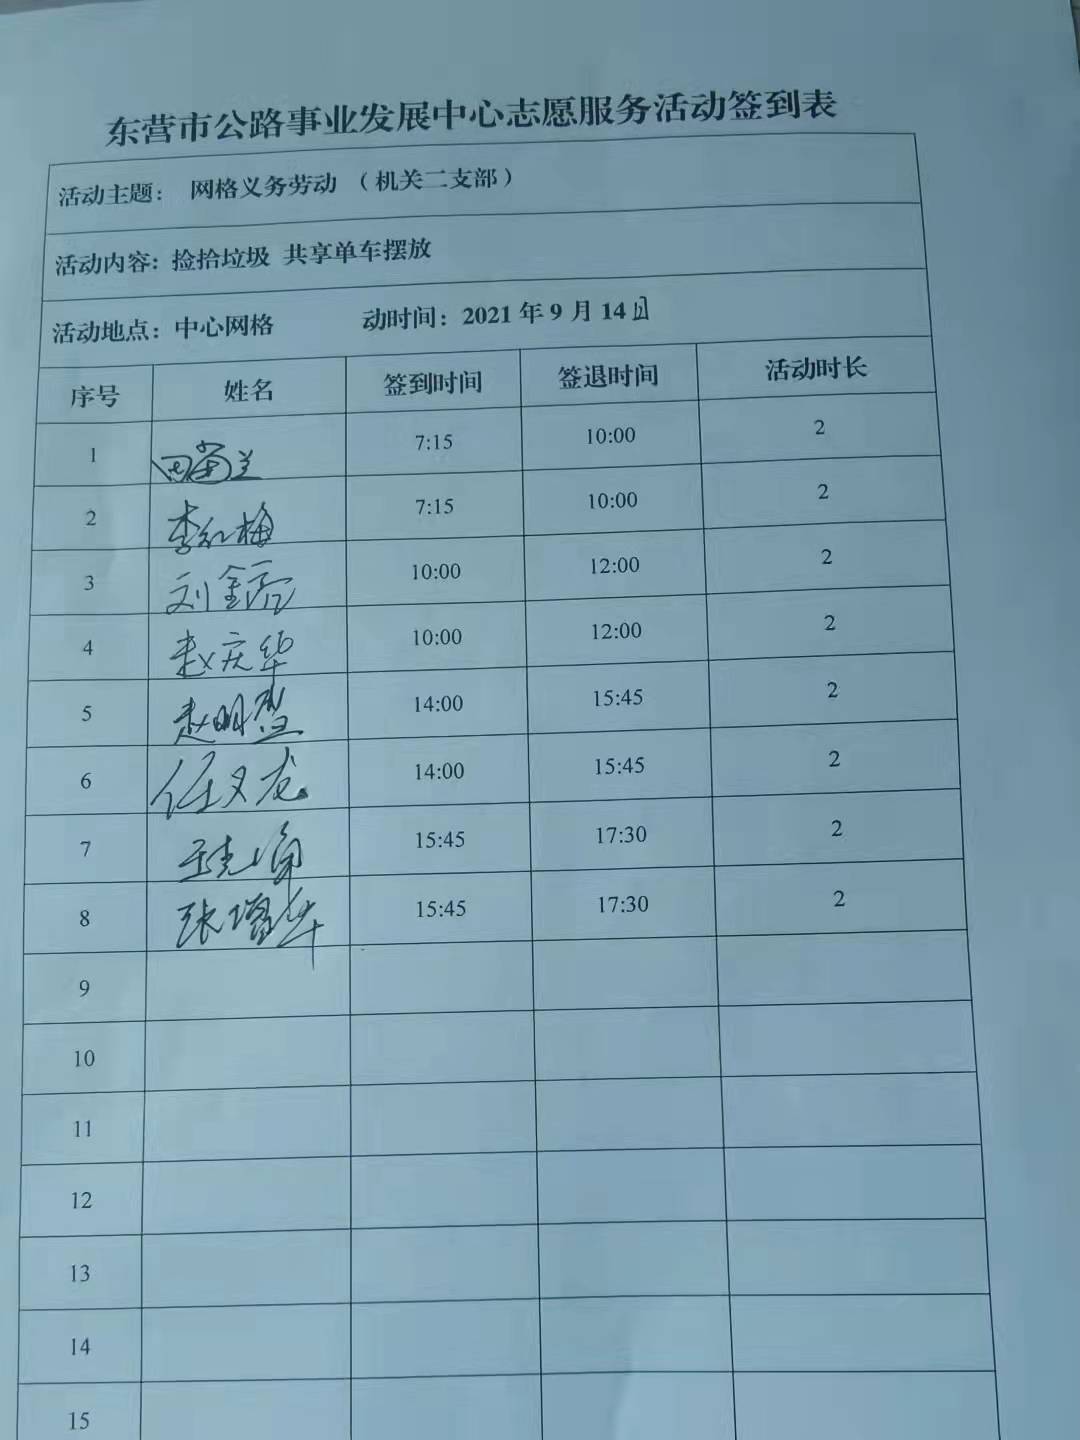 东营市公路事业发展中心志愿服务活动签到表
活动主题： 网格义务劳动 （机关二支部）
活动内容：捡拾垃圾 共享单车摆放
活动地点：中心网格 动时间：2021 年 9 月 14日
序号 姓名 签到时间 签退时间 活动时长
1 7:15 10:00 2
2 李红梅 7:15 10:00 2
3 刘 10:00 12:00 2
4 赵庆华 10:00 12:00 2
5 赵明 14:00 15:45 2
6 任义龙 14:00 15:45 2
7 15:45 17:30 2
8 张增华 15:45 17:30 2
9
10
11
12
13
14
15